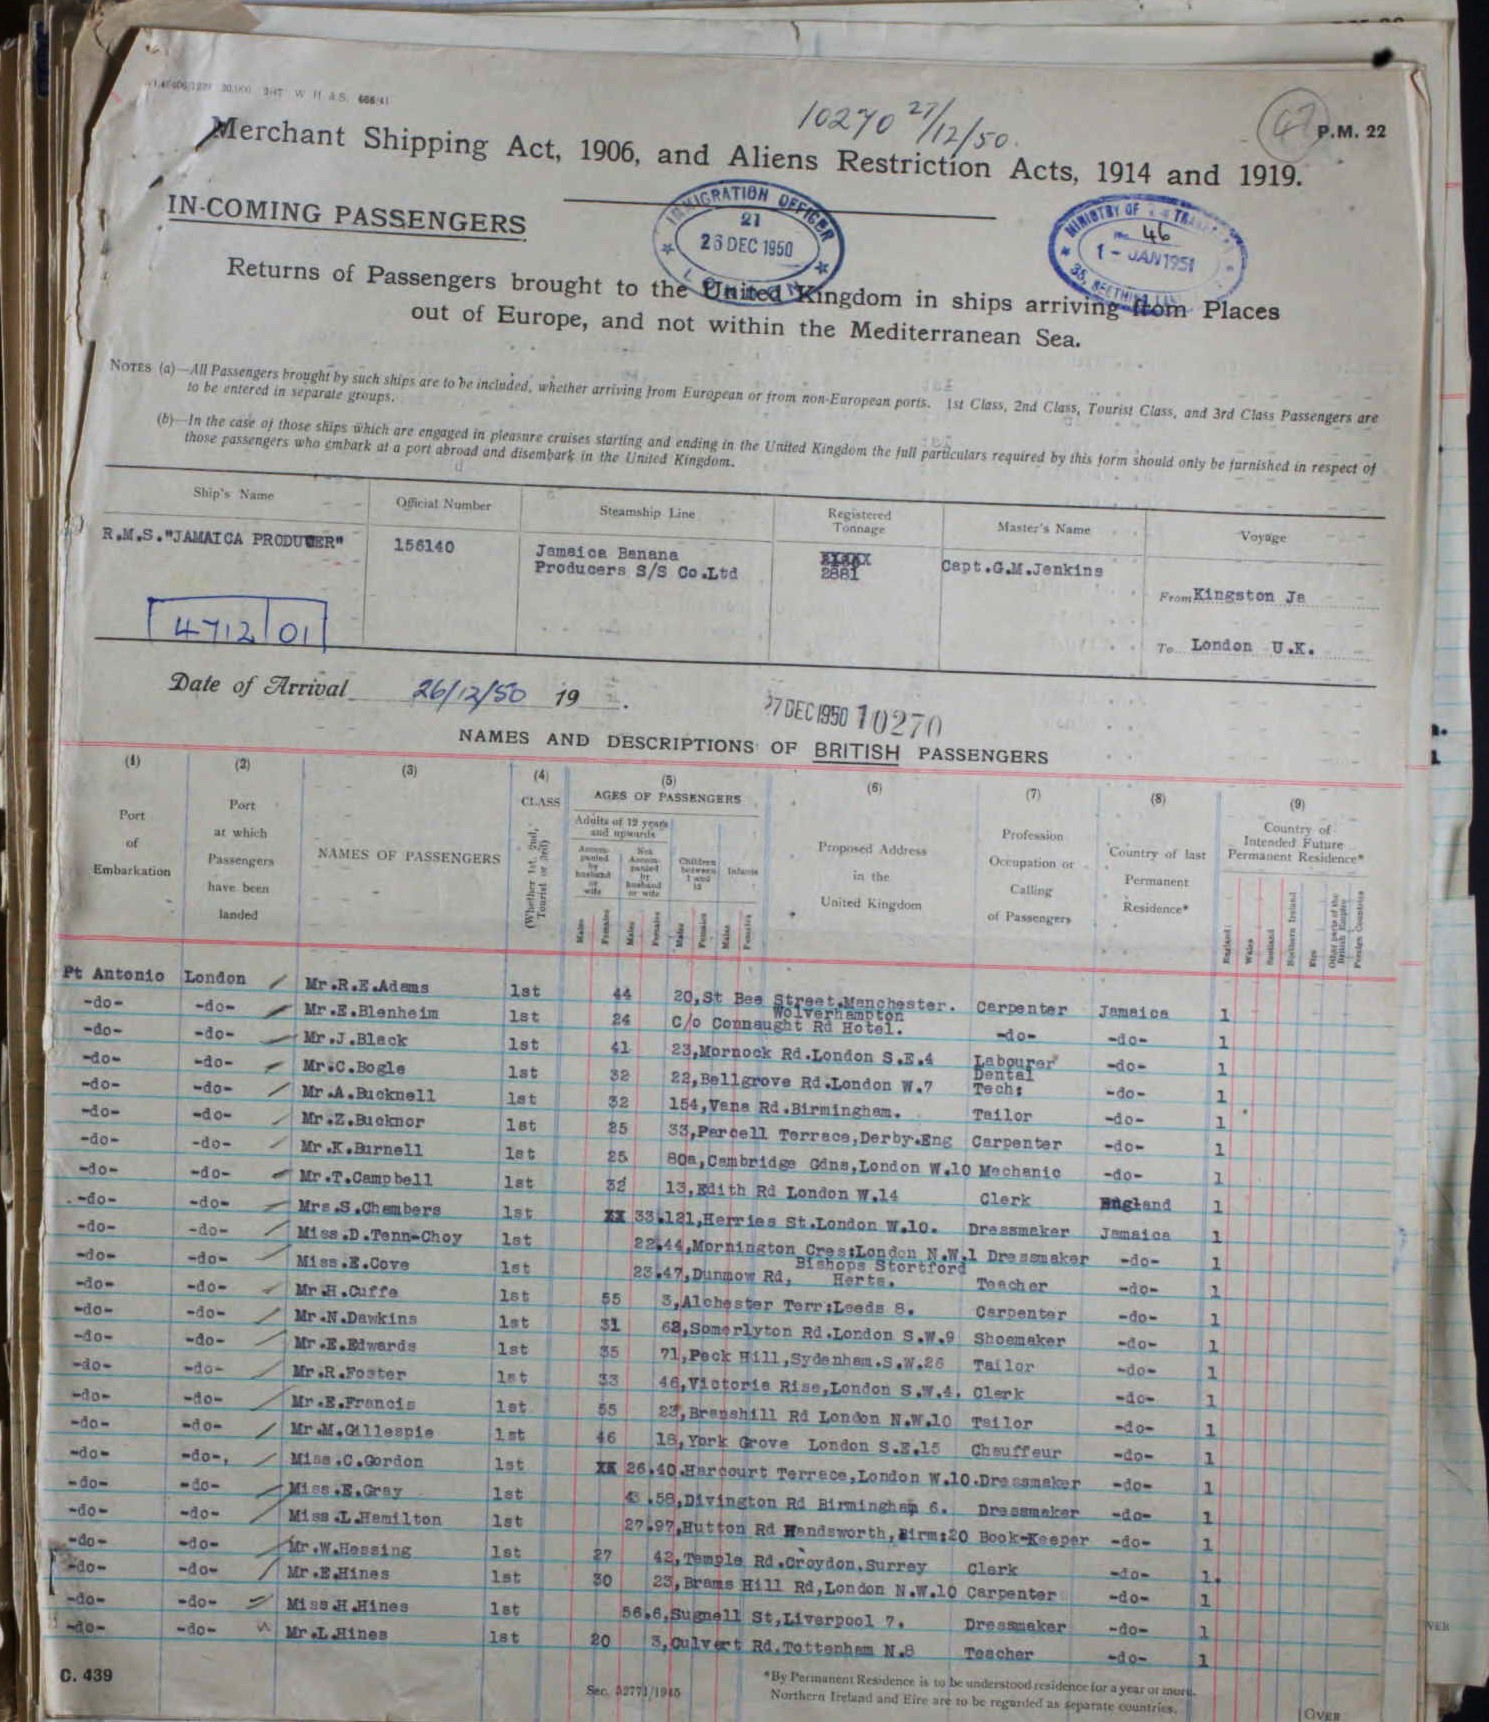 10270 27/12/50.
47
P.M. 22
Merchant Shipping Act, 1906, and Aliens Restriction Acts, 1914 and 1919.
IN-COMING PASSENGERS
IMMIGRATION OFFICER
21
26 DEC 1950
MINISTRY OF
46
1 - JAN 1951
Returns of Passengers brought to the United Kingdom in ships arriving from Places
out of Europe, and not within the Mediterranean Sea.
NOTES (a)—All Passengers brought by such ships are to be included, whether arriving from European or from non-European ports. 1st Class, 2nd Class, Tourist Class, and 3rd Class Passengers are
to be entered in separate groups.
(b)—In the case of those ships which are engaged in pleasure cruises starting and ending in the United Kingdom the full particulars required by this form should only be furnished in respect of
those passengers who embark at a port abroad and disembark in the United Kingdom.
Ship's Name Official Number Steamship Line Registered Tonnage Master's Name Voyage
R.M.S."JAMAICA PRODUCER" 156140 Jamaica Banana Producers S/S Co.Ltd 2881 Capt.G.M.Jenkins From Kingston Ja
4712 01
To London U.K.
Date of Arrival 26/12/50 19 .
27 DEC 1950 10270
NAMES AND DESCRIPTIONS OF BRITISH PASSENGERS
(1) (2) (3) (4) (5) (6) (7) (8) (9)
Port of Embarkation
Port at which Passengers have been landed
NAMES OF PASSENGERS
CLASS (Whether 1st, 2nd, Tourist or 3rd)
AGES OF PASSENGERS
Adults of 12 years and upwards
Accompanied by husband or wife
Not Accompanied by husband or wife
Children between 1 and 12
Infants
Males Females Males Females Males Females Males Females
Proposed Address in the United Kingdom
Profession Occupation or Calling of Passengers
Country of last Permanent Residence*
Country of Intended Future Permanent Residence*
England Wales Scotland Northern Ireland Eire Other parts of the British Empire Foreign Countries
Pt Antonio London Mr.R.E.Adams 1st 44 20,St Bee Street.Manchester. Carpenter Jamaica 1
-do- -do- Mr.E.Blenheim 1st 24 C/o Connaught Rd Hotel. Wolverhampton -do- -do- 1
-do- -do- Mr.J.Black 1st 41 23,Mornock Rd.London S.E.4 Labourer -do- 1
-do- -do- Mr.C.Bogle 1st 32 22,Bellgrove Rd.London W.7 Dental Tech: -do- 1
-do- -do- Mr.A.Bucknell 1st 32 154,Vana Rd.Birmingham. Tailor -do- 1
-do- -do- Mr.Z.Bucknor 1st 25 33,Parcell Terrace,Derby.Eng Carpenter -do- 1
-do- -do- Mr.K.Burnell 1st 25 80a,Cambridge Gdns,London W.10 Mechanic -do- 1
-do- -do- Mr.T.Campbell 1st 32 13,Edith Rd London W.14 Clerk England 1
-do- -do- Mrs.S.Chambers 1st XX 33.121,Herries St.London W.10. Dressmaker Jamaica 1
-do- -do- Miss.D.Tenn-Choy 1st 22.44,Mornington Cres:London N.W.1 Dressmaker -do- 1
-do- -do- Miss.E.Cove 1st 23.47,Dunmow Rd, Bishops Stortford Herts. Teacher -do- 1
-do- -do- Mr.H.Cuffe 1st 55 3,Alchester Terr:Leeds 8. Carpenter -do- 1
-do- -do- Mr.N.Dawkins 1st 31 62,Somerlyton Rd.London S.W.9 Shoemaker -do- 1
-do- -do- Mr.E.Edwards 1st 35 71,Peck Hill,Sydenham.S.W.26 Tailor -do- 1
-do- -do- Mr.R.Foster 1st 33 46,Victoria Rise,London S.W.4. Clerk -do- 1
-do- -do- Mr.E.Francis 1st 55 23,Bramshill Rd London N.W.10 Tailor -do- 1
-do- -do- Mr.M.Gillespie 1st 46 18,York Grove London S.E.15 Chauffeur -do- 1
-do- -do-, Miss.C.Gordon 1st XX 26.40.Harcourt Terrace,London W.10.Dressmaker -do- 1
-do- -do- Miss.E.Gray 1st 43.58,Divington Rd Birmingham 6. Dressmaker -do- 1
-do- -do- Miss.L.Hamilton 1st 27.97,Hutton Rd Handsworth,Birm:20 Book-Keeper -do- 1
-do- -do- Mr.W.Hessing 1st 27 42,Temple Rd.Croydon.Surrey Clerk -do- 1.
-do- -do- Mr.E.Hines 1st 30 23,Brams Hill Rd,London N.W.10 Carpenter -do- 1
-do- -do- Miss.H.Hines 1st 56.6,Sugnell St,Liverpool 7. Dressmaker -do- 1
-do- -do- Mr.L.Hines 1st 20 3,Culvert Rd.Tottenham N.8 Teacher -do- 1
C. 439
*By Permanent Residence is to be understood residence for a year or more.
Northern Ireland and Eire are to be regarded as separate countries.
OVER